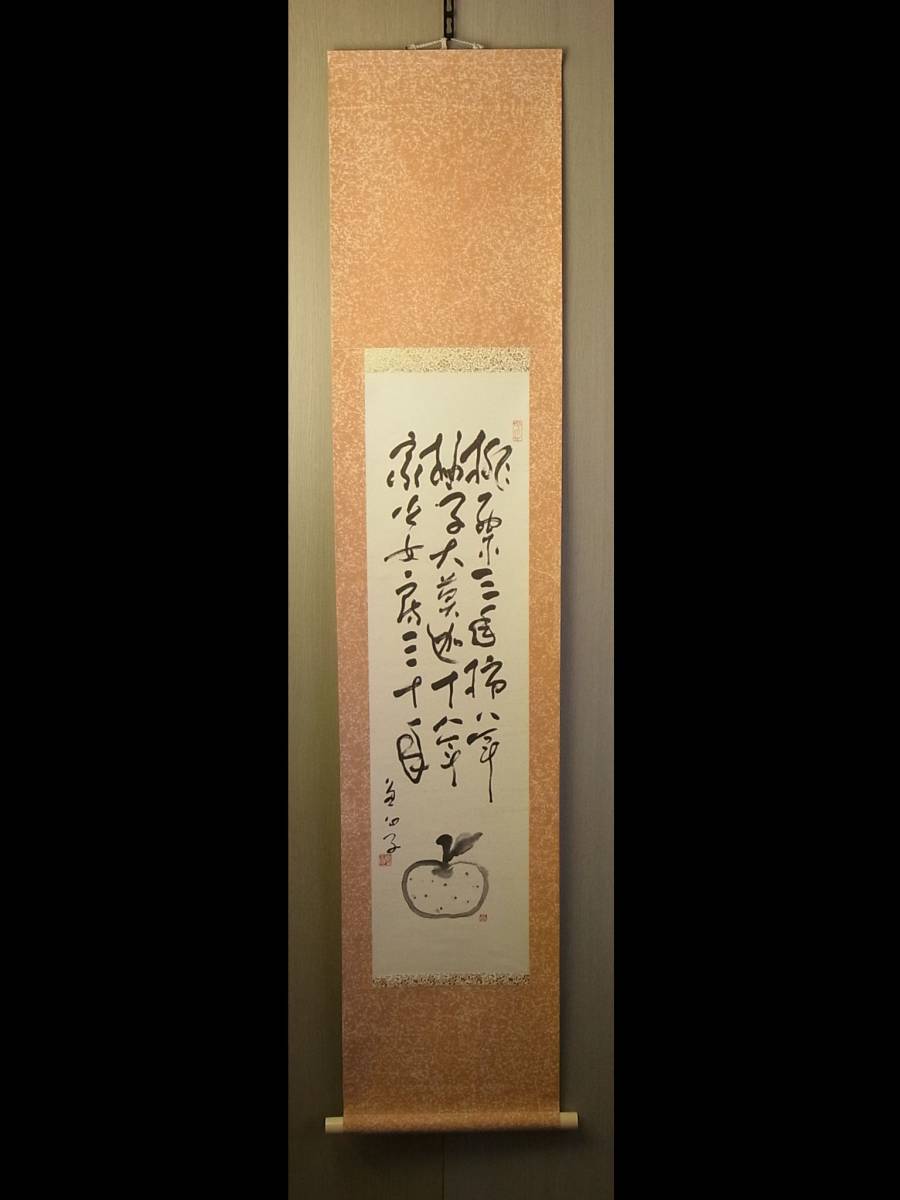 桃栗三年柿八年
柚子大莫迦十八年
家女房三十年